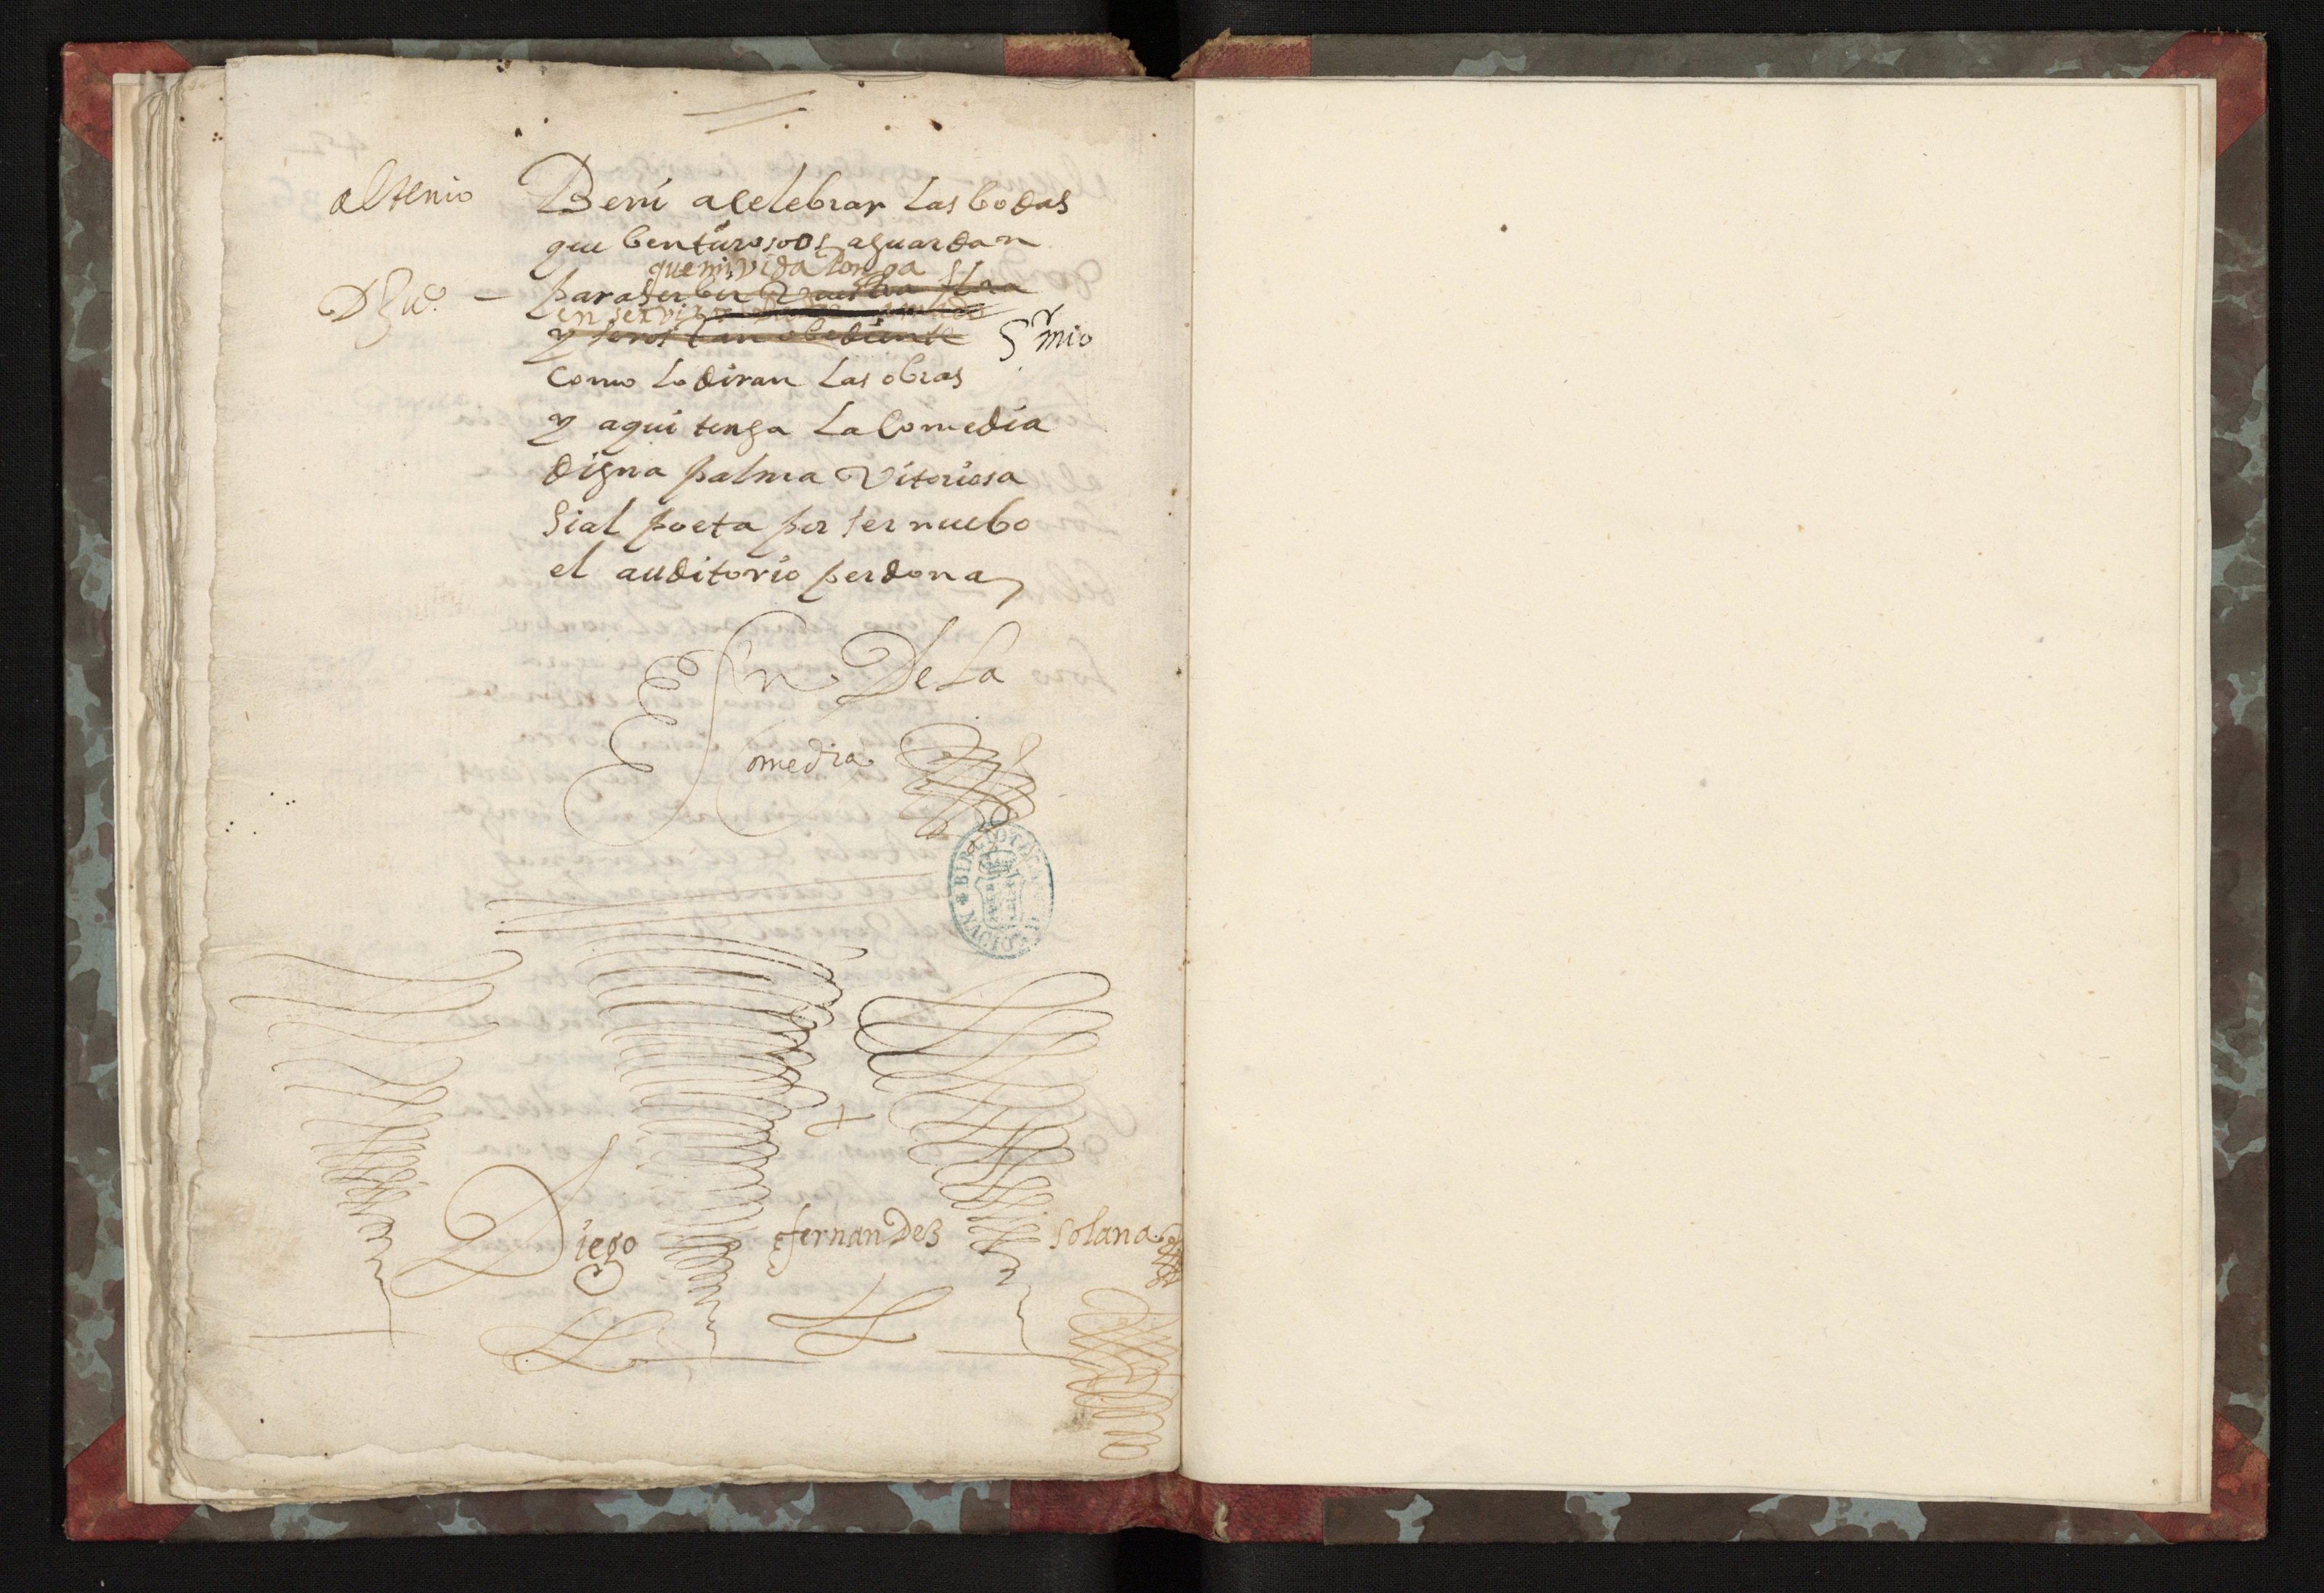 alsenio Beni a celebrar las bodas
que benturosos aguardan
que mi vida ponga
D Ju.º — para serbir
en servi
y seros tan obediente Sr mio
como lo diran las obras
y aqui tenga la comedia
digna palma vitoriosa
si al poeta por ser nuebo
el auditorio perdona
Fin De la
Comedia
BIBLIOTECA NACIONAL
Diego fernandes solana